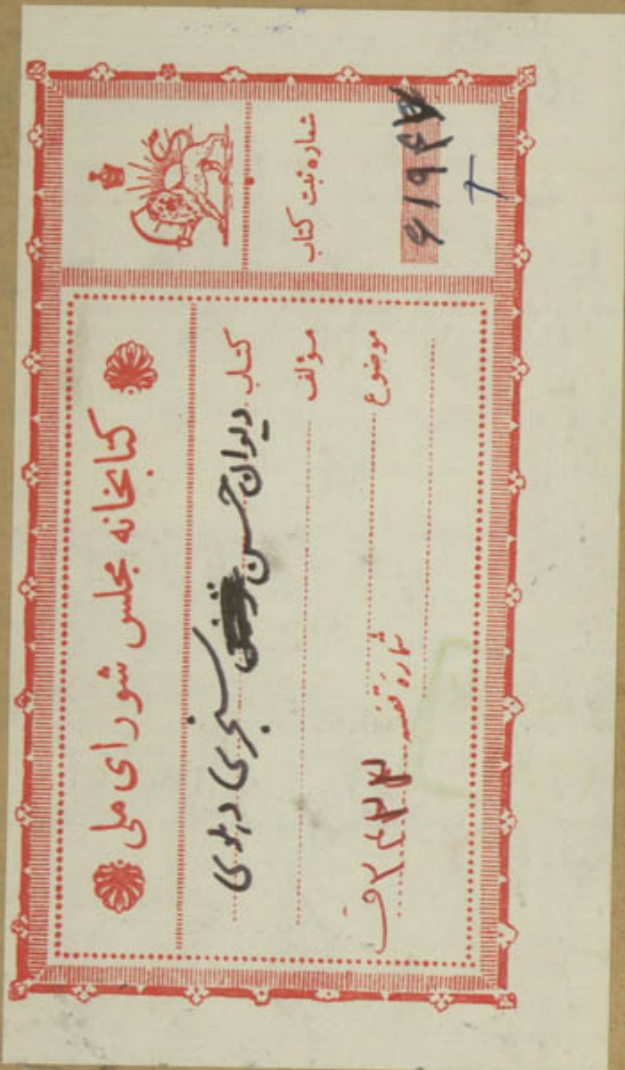 کتابخانه مجلس شورای ملی
کتاب دیوان حسن سنجری دهلوی
مؤلف
موضوع
شماره قفسه
شماره ثبت کتاب